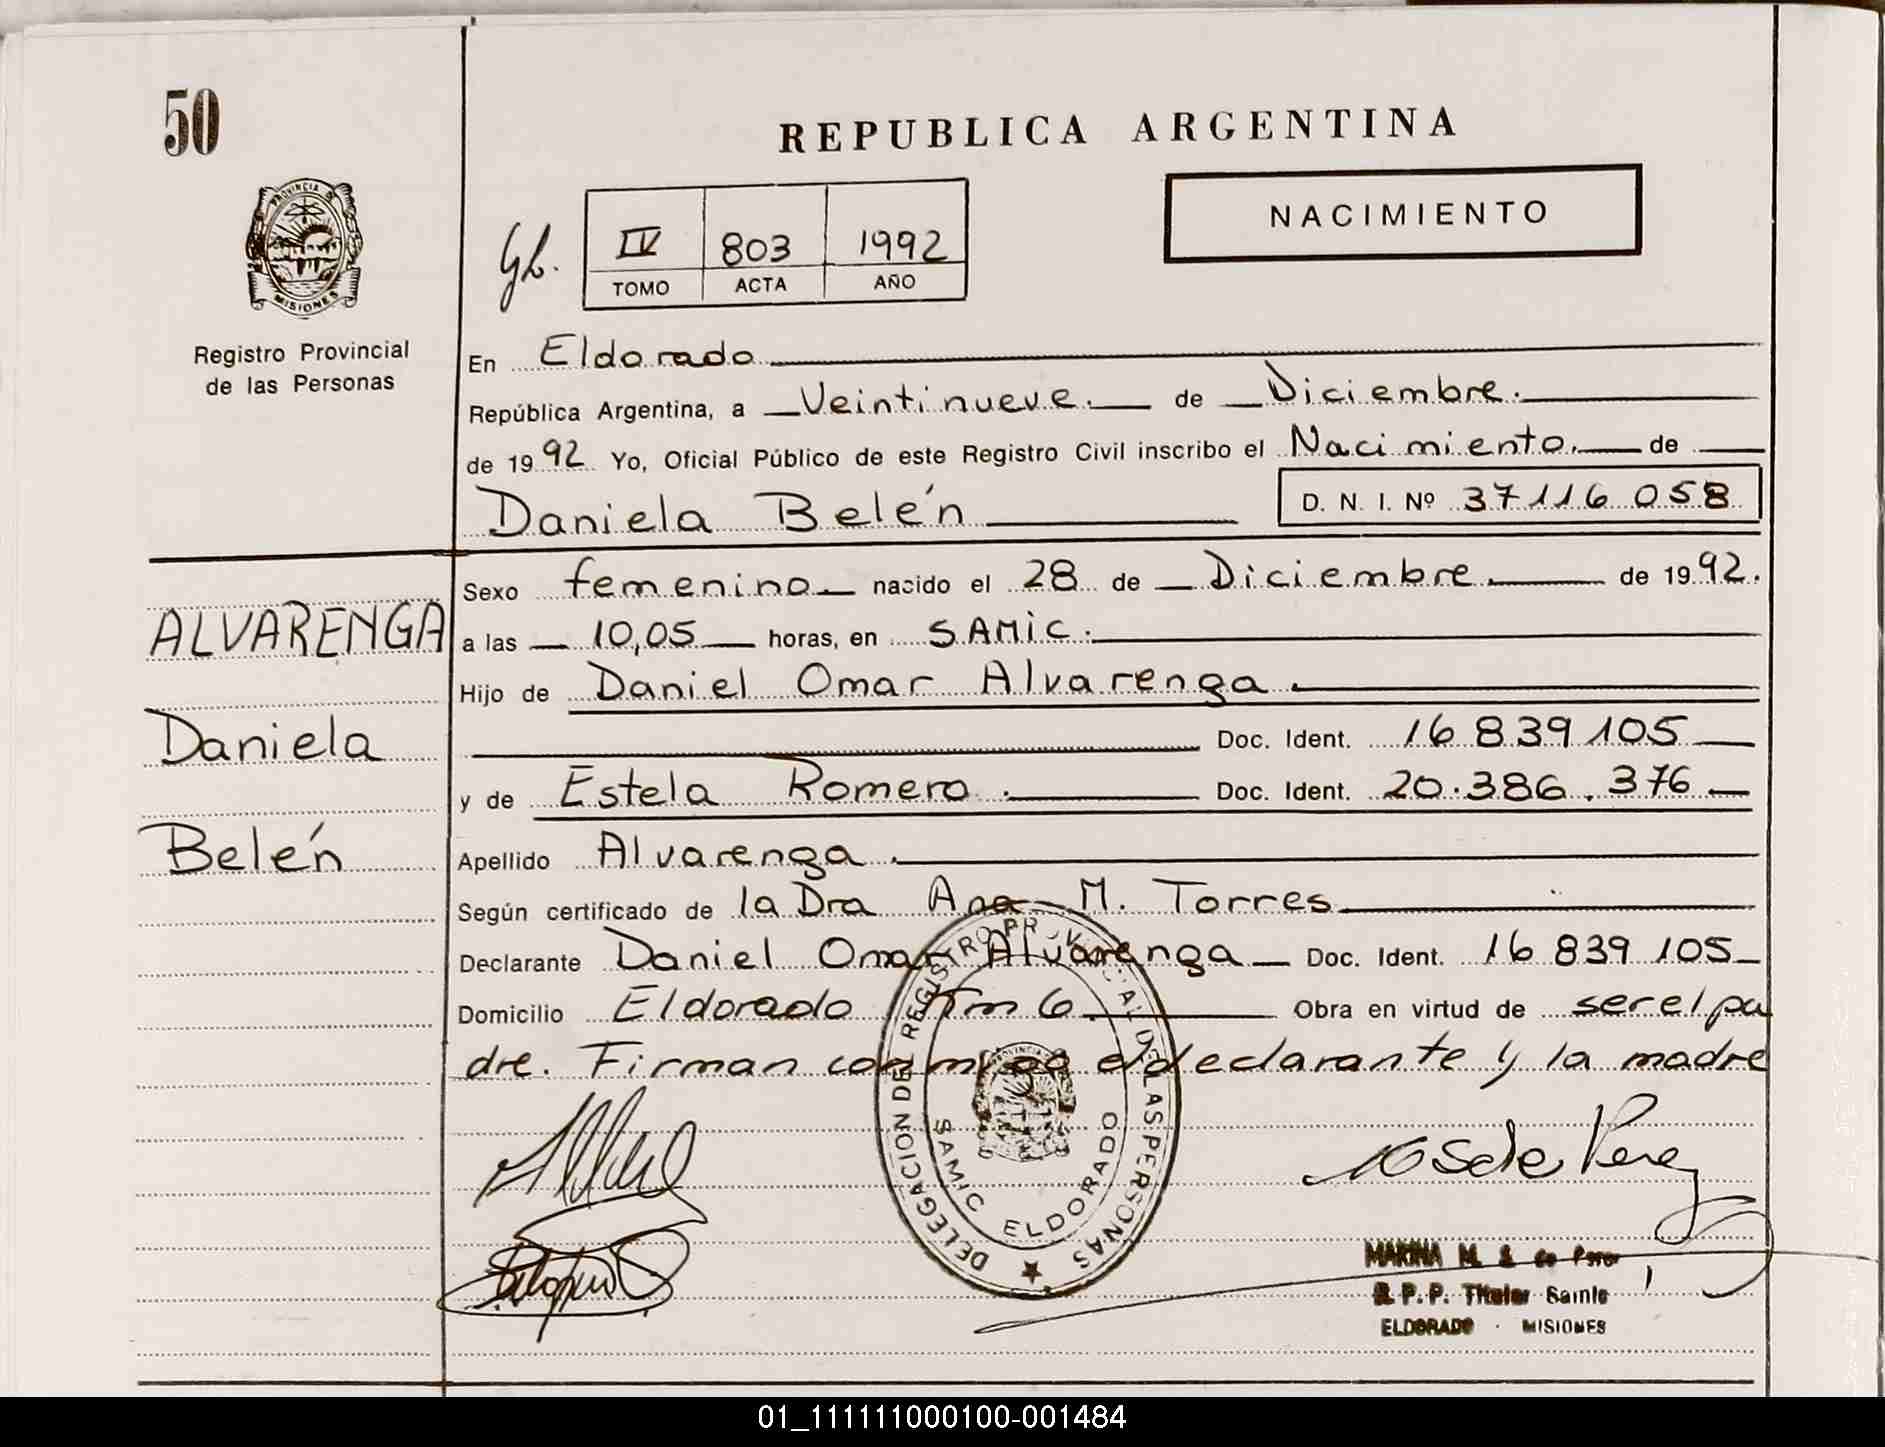 50
REPUBLICA ARGENTINA
PROVINCIA DE
MISIONES
NACIMIENTO
IV 803 1992
TOMO ACTA AÑO
Registro Provincial
de las Personas
En Eldorado
República Argentina, a Veintinueve. de Diciembre.
de 1992 Yo, Oficial Público de este Registro Civil inscribo el Nacimiento. de
Daniela Belén D. N. I. Nº 37116058
ALVARENGA
Daniela
Belén
Sexo femenino nacido el 28 de Diciembre de 1992.
a las 10,05 horas, en SAMIC.
Hijo de Daniel Omar Alvarenga.
Doc. Ident. 16 839 105
y de Estela Romero. Doc. Ident. 20.386.376
Apellido Alvarenga.
Según certificado de la Dra Ana M. Torres
Declarante Daniel Omar Alvarenga Doc. Ident. 16 839 105
Domicilio Eldorado Km 6. Obra en virtud de ser el pa
dre. Firman conmigo el declarante y la madre
DELEGACION DEL REGISTRO PROVINCIAL DE LAS PERSONAS
SAMIC ELDORADO
MARINA M.
R.P.P. Titular
ELDORADO · MISIONES
01_111111000100-001484